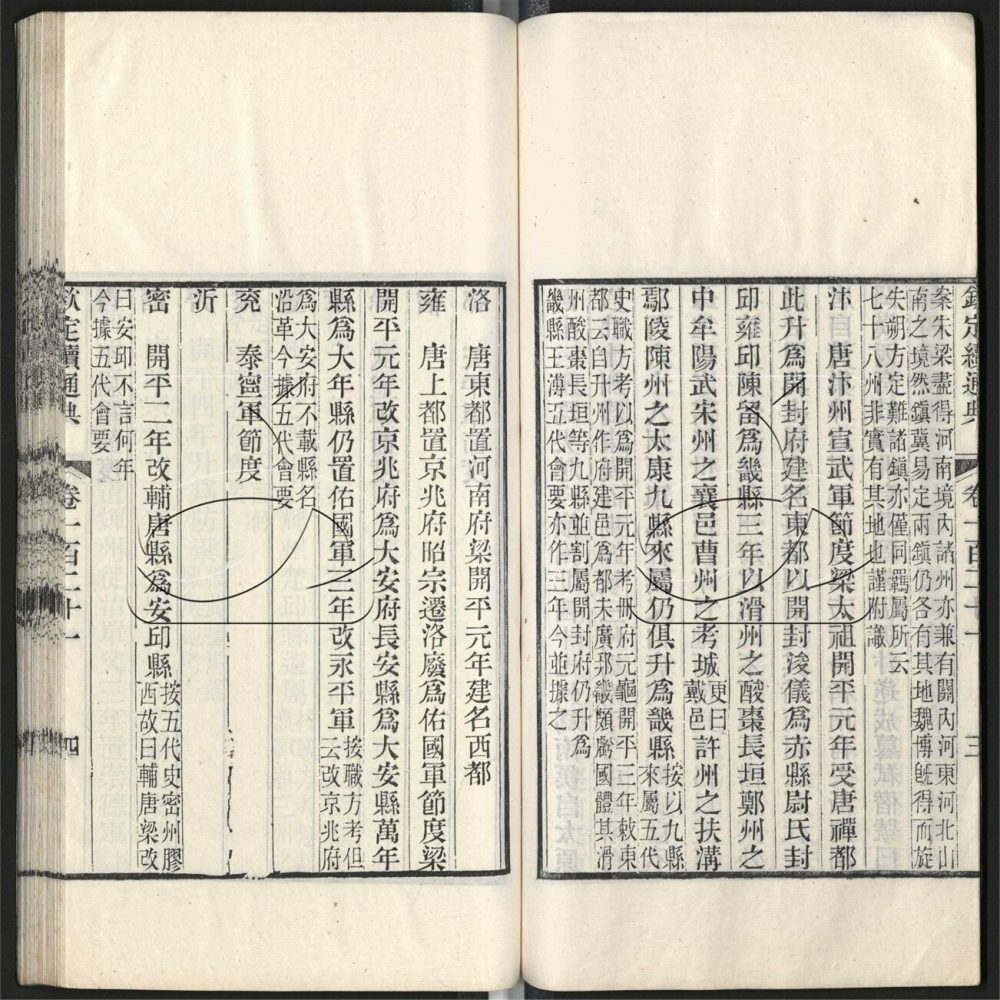 欽定續通典 卷一百二十一 三
案朱梁盡得河南境內諸州亦兼有關內河東河北山
南之境然鎮冀易定兩鎮仍各有其地魏博旣得而旋
失朔方定難諸鎮亦僅同羈屬所云
七十八州非實有其地也謹附識
汴 唐汴州宣武軍節度梁太祖開平元年受唐禪都
此升爲開封府建名東都以開封浚儀爲赤縣尉氏封
邱雍邱陳留爲畿縣三年以滑州之酸棗長垣鄭州之
中牟陽武宋州之襄邑曹州之考城更曰戴邑許州之扶溝
鄢陵陳州之太康九縣來屬仍俱升爲畿縣按以九縣來屬五代
史職方考以爲開平元年考冊府元龜開平三年敕東
都云自升州作府建邑爲都未廣邦畿頗虧國體其滑
州酸棗長垣等九縣並割屬開封府仍升爲
畿縣王溥五代會要亦作三年今並據之
洛 唐東都置河南府梁開平元年建名西都
雍 唐上都置京兆府昭宗遷洛廢爲佑國軍節度梁
開平元年改京兆府爲大安府長安縣爲大安縣萬年
縣爲大年縣仍置佑國軍三年改永平軍按職方考但云改京兆府
爲大安府不載縣名
沿革今據五代會要
兗 泰寧軍節度
沂
密 開平二年改輔唐縣爲安邱縣按五代史密州膠西故曰輔唐梁改
曰安邱不言何年
今據五代會要
欽定續通典 卷一百二十一 四